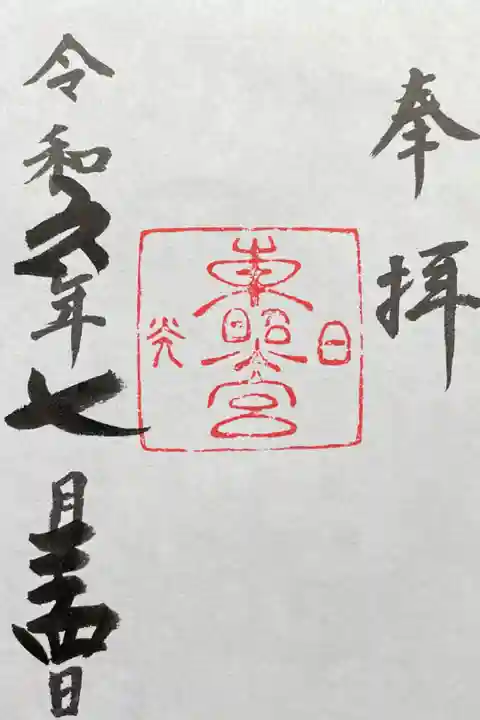 奉拝
日
東照宮
光
令和六年七月二十四日